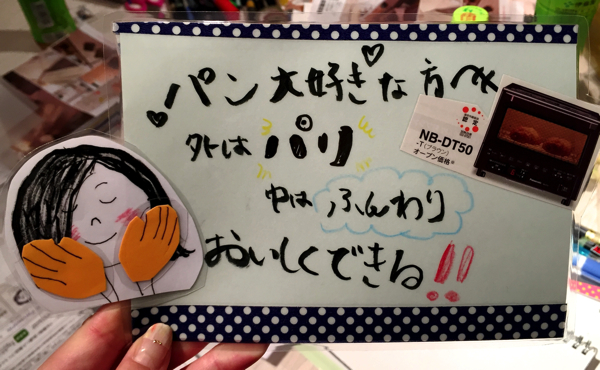 パン大好きな方へ
外はパリ
中はふんわり
おいしくできる!!
NB-DT50
-T(ブラウン)
オープン価格※